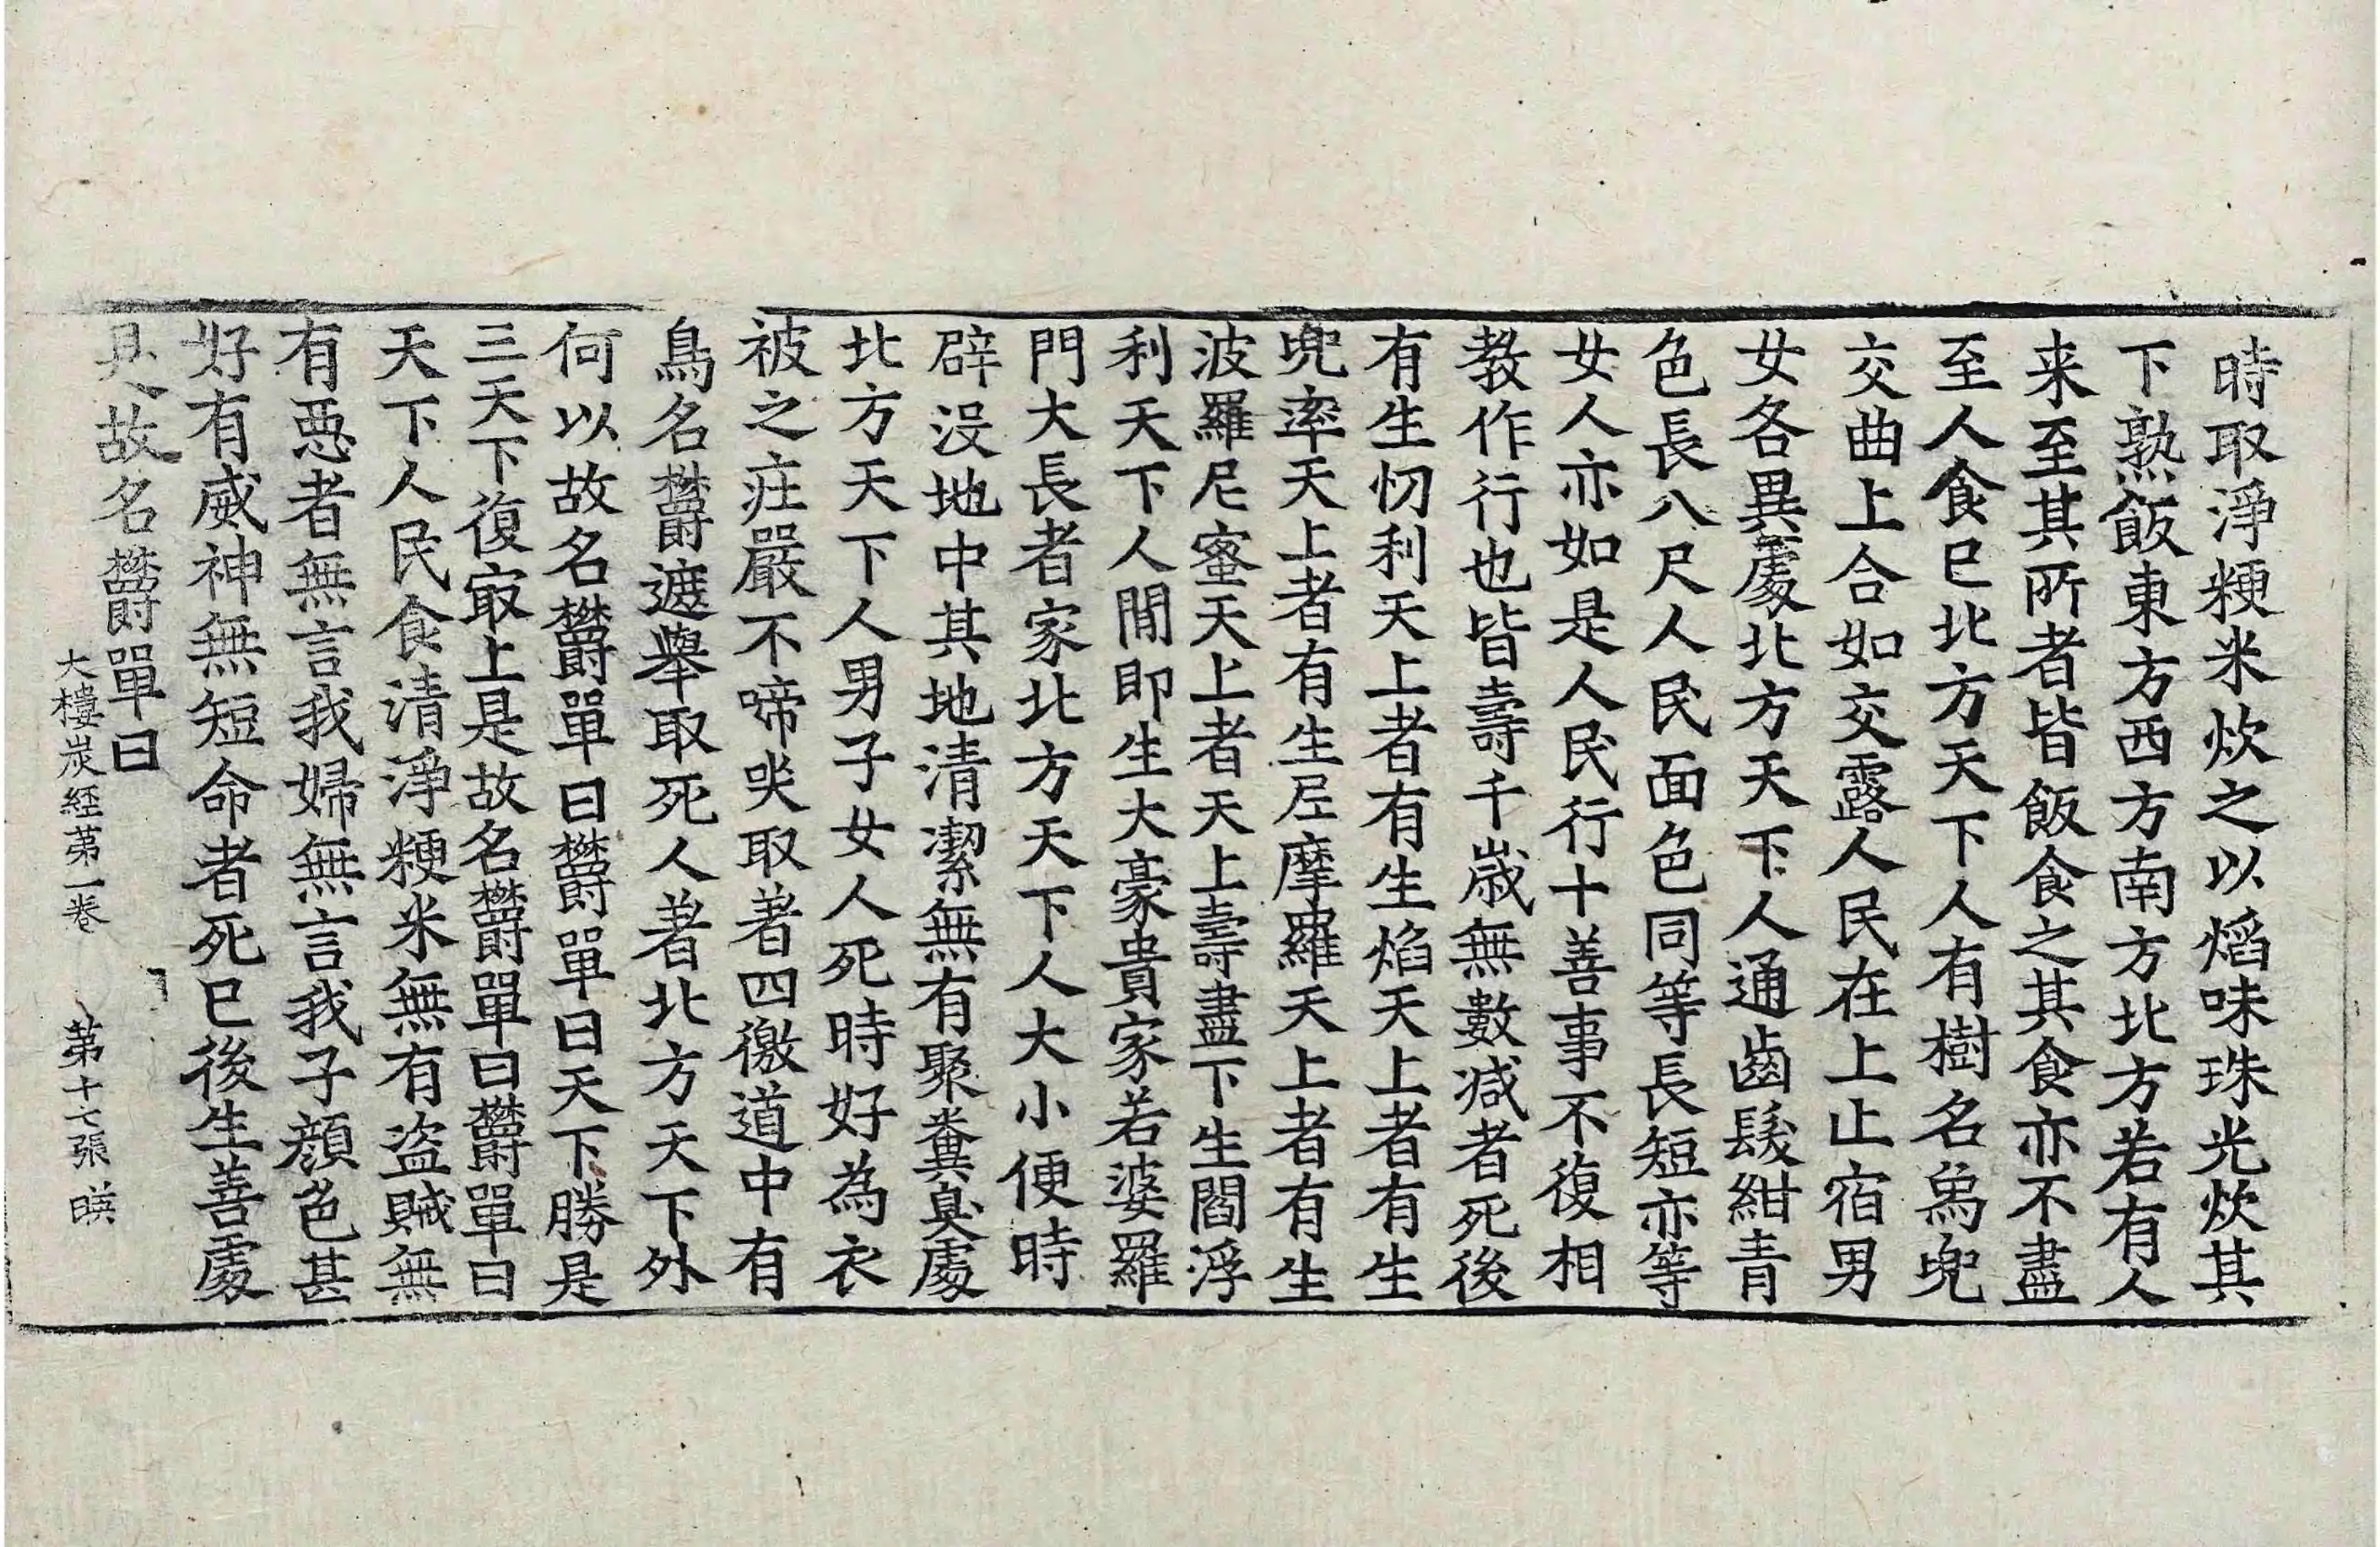 時取淨粳米炊之以焰味珠光炊其
下熟飯東方西方南方北方若有人
来至其所者皆飯食之其食亦不盡
至人食已北方天下人有樹名為兜
交曲上合如交露人民在上止宿男
女各異處北方天下人通齒髮紺青
色長八尺人民面色同等長短亦等
女人亦如是人民行十善事不復相
教作行也皆壽千歲無數减者死後
有生忉利天上者有生焰天上者有生
兜率天上者有生尼摩羅天上者有生
波羅尼蜜天上者天上壽盡下生閻浮
利天下人間即生大豪貴家若婆羅
門大長者家北方天下人大小便時
辟没地中其地清潔無有聚糞臭處
北方天下人男子女人死時好為衣
被之庄嚴不啼哭取著四徼道中有
鳥名欝遮舉取死人著北方天下外
何以故名欝單曰欝單曰天下勝是
三天下復㝡上是故名欝單曰欝單曰
天下人民食清淨粳米無有盗賊無
有惡者無言我婦無言我子顔色甚
好有威神無短命者死已後生善處
是故名欝單曰
大樓炭經第一卷 第十七張 暎